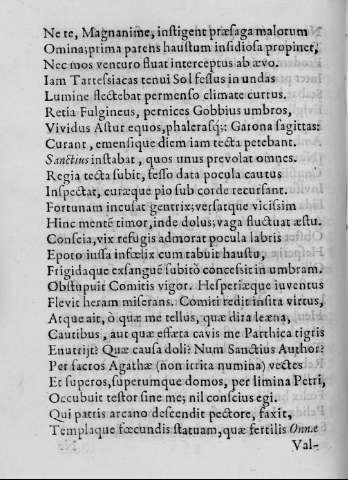 Ne te, Magnanime, instigent præsaga malorum
Omina; prima parens haustum insidiosa propinet,
Nec mos venturo fluat interceptus ab ævo.
Iam Tartessiacas tenui Sol fessus in undas
Lumine flectebat permenso climate currus.
Retia Fulgineus, pernices Gobbius umbros,
Vividus Astur equos, phalerasq; Garona sagittas:
Curant, emensique diem iam tecta petebant.
Sanctius instabat, quos unus prevolat omnes.
Regia tecta subit, fesso data pocula cautus
Inspectat, curæque pio sub corde recursant.
Fortunam incusat gentrix; versatque vicissim
Hinc mentē timor, inde dolus; vaga fluctuat æstu.
Conscia, vix refugis admorat pocula labris
Epoto iussa infœlix cum tabuit haustu,
Frigidaque exsanguē subitò concessit in umbram.
Obstupuit Comitis vigor. Hesperiæque iuventus
Flevit heram miserans. Comiti redit insita virtus,
Atque ait, ò quæ me tellus, quæ dira leæna,
Cautibus, aut quæ effæta cavis me Parthica tigris
Enutrijt? Quæ causa doli? Num Sanctius Author?
Per sacros Agathæ (non irrita numina) vectes
Et superos, superumque domos, per limina Petri,
Occubuit testor sine me; nil conscius egi.
Qui patris arcano descendit pectore, faxit,
Templaque fœcundis statuam, quæ fertilis Onnæ
Val-